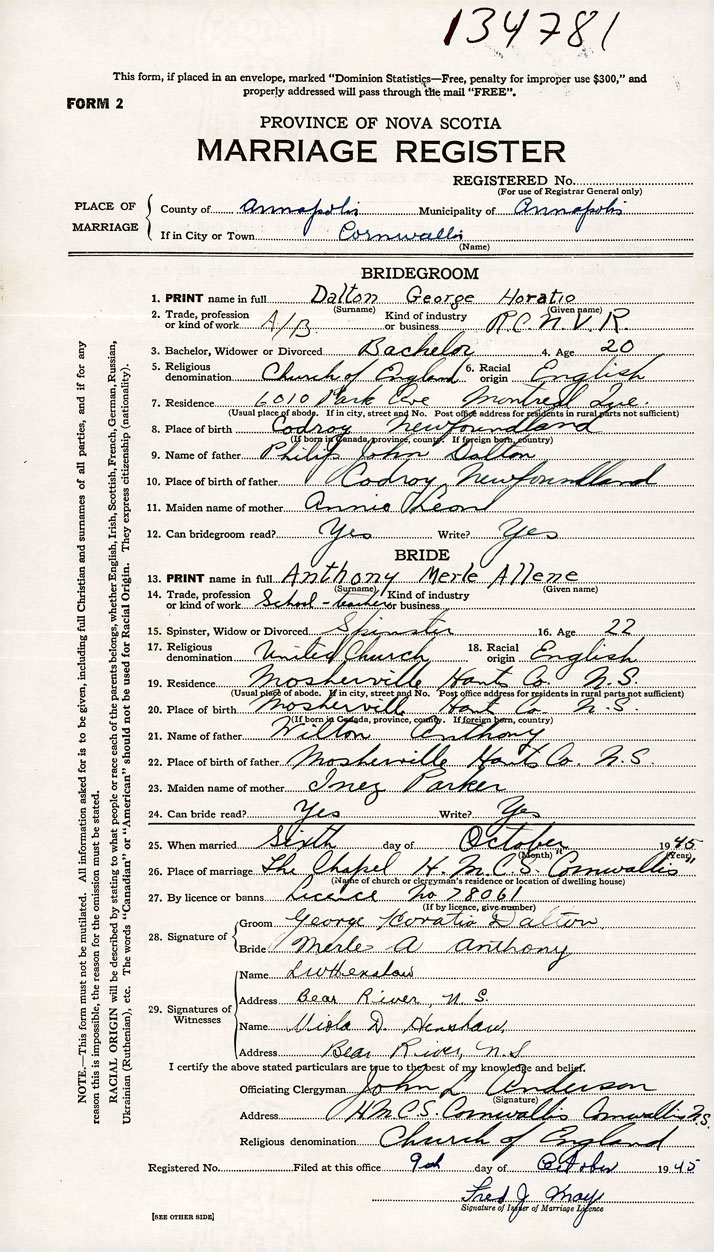 134781
This form, if placed in an envelope, marked "Dominion Statistics—Free, penalty for improper use $300," and
properly addressed will pass through the mail "FREE".
FORM 2
PROVINCE OF NOVA SCOTIA
MARRIAGE REGISTER
REGISTERED No.
(For use of Registrar General only)
PLACE OF MARRIAGE
County of Annapolis Municipality of Annapolis
If in City or Town Cornwallis
(Name)
BRIDEGROOM
1. PRINT name in full Dalton George Horatio
(Surname) (Given name)
2. Trade, profession or kind of work A/B Kind of industry or business R.C.N.V.R.
3. Bachelor, Widower or Divorced Bachelor 4. Age 20
5. Religious denomination Church of England 6. Racial origin English
7. Residence 6010 Park Ave Montreal Que.
(Usual place of abode. If in city, street and No. Post office address for residents in rural parts not sufficient)
8. Place of birth Codroy Newfoundland
(If born in Canada, province, county. If foreign born, country)
9. Name of father Philip John Dalton
10. Place of birth of father Codroy, Newfoundland
11. Maiden name of mother Annie
12. Can bridegroom read? Yes Write? Yes
BRIDE
13. PRINT name in full Anthony Merle Allene
(Surname) (Given name)
14. Trade, profession or kind of work School-teacher Kind of industry or business
15. Spinster, Widow or Divorced Spinster 16. Age 22
17. Religious denomination United Church 18. Racial origin English
19. Residence Mosherville Hants Co. N.S.
(Usual place of abode. If in city, street and No. Post office address for residents in rural parts not sufficient)
20. Place of birth Mosherville Hants Co. N.S.
(If born in Canada, province, county. If foreign born, country)
21. Name of father Wilton Anthony
22. Place of birth of father Mosherville Hants Co. N.S.
23. Maiden name of mother Inez Parker
24. Can bride read? Yes Write? Yes
25. When married Sixth day of October 1945
(Month) (Year)
26. Place of marriage The Chapel H.M.C.S. "Cornwallis"
(Name of church or clergyman's residence or location of dwelling house)
27. By licence or banns Licence No 78061
(If by licence, give number)
28. Signature of
Groom George Horatio Dalton
Bride Merle A Anthony
29. Signatures of Witnesses
Name Henshaw
Address Bear River, N.S.
Name Viola D. Henshaw
Address Bear River, N.S.
I certify the above stated particulars are true to the best of my knowledge and belief.
Officiating Clergyman John L. Anderson
(Signature)
Address H.M.C.S. Cornwallis Cornwallis N.S.
Religious denomination Church of England
Registered No. Filed at this office 9th day of October 1945
Fred J. May
Signature of Issuer of Marriage Licence
[SEE OTHER SIDE]
NOTE.—This form must not be mutilated. All information asked for is to be given, including full Christian and surnames of all parties, and if for any
reason this is impossible, the reason for the omission must be stated.
RACIAL ORIGIN will be described by stating to what people or race each of the parents belongs, whether English, Irish, Scottish, French, German, Russian,
Ukrainian (Ruthenian), etc. The words "Canadian" or "American" should not be used for Racial Origin. They express citizenship (nationality).